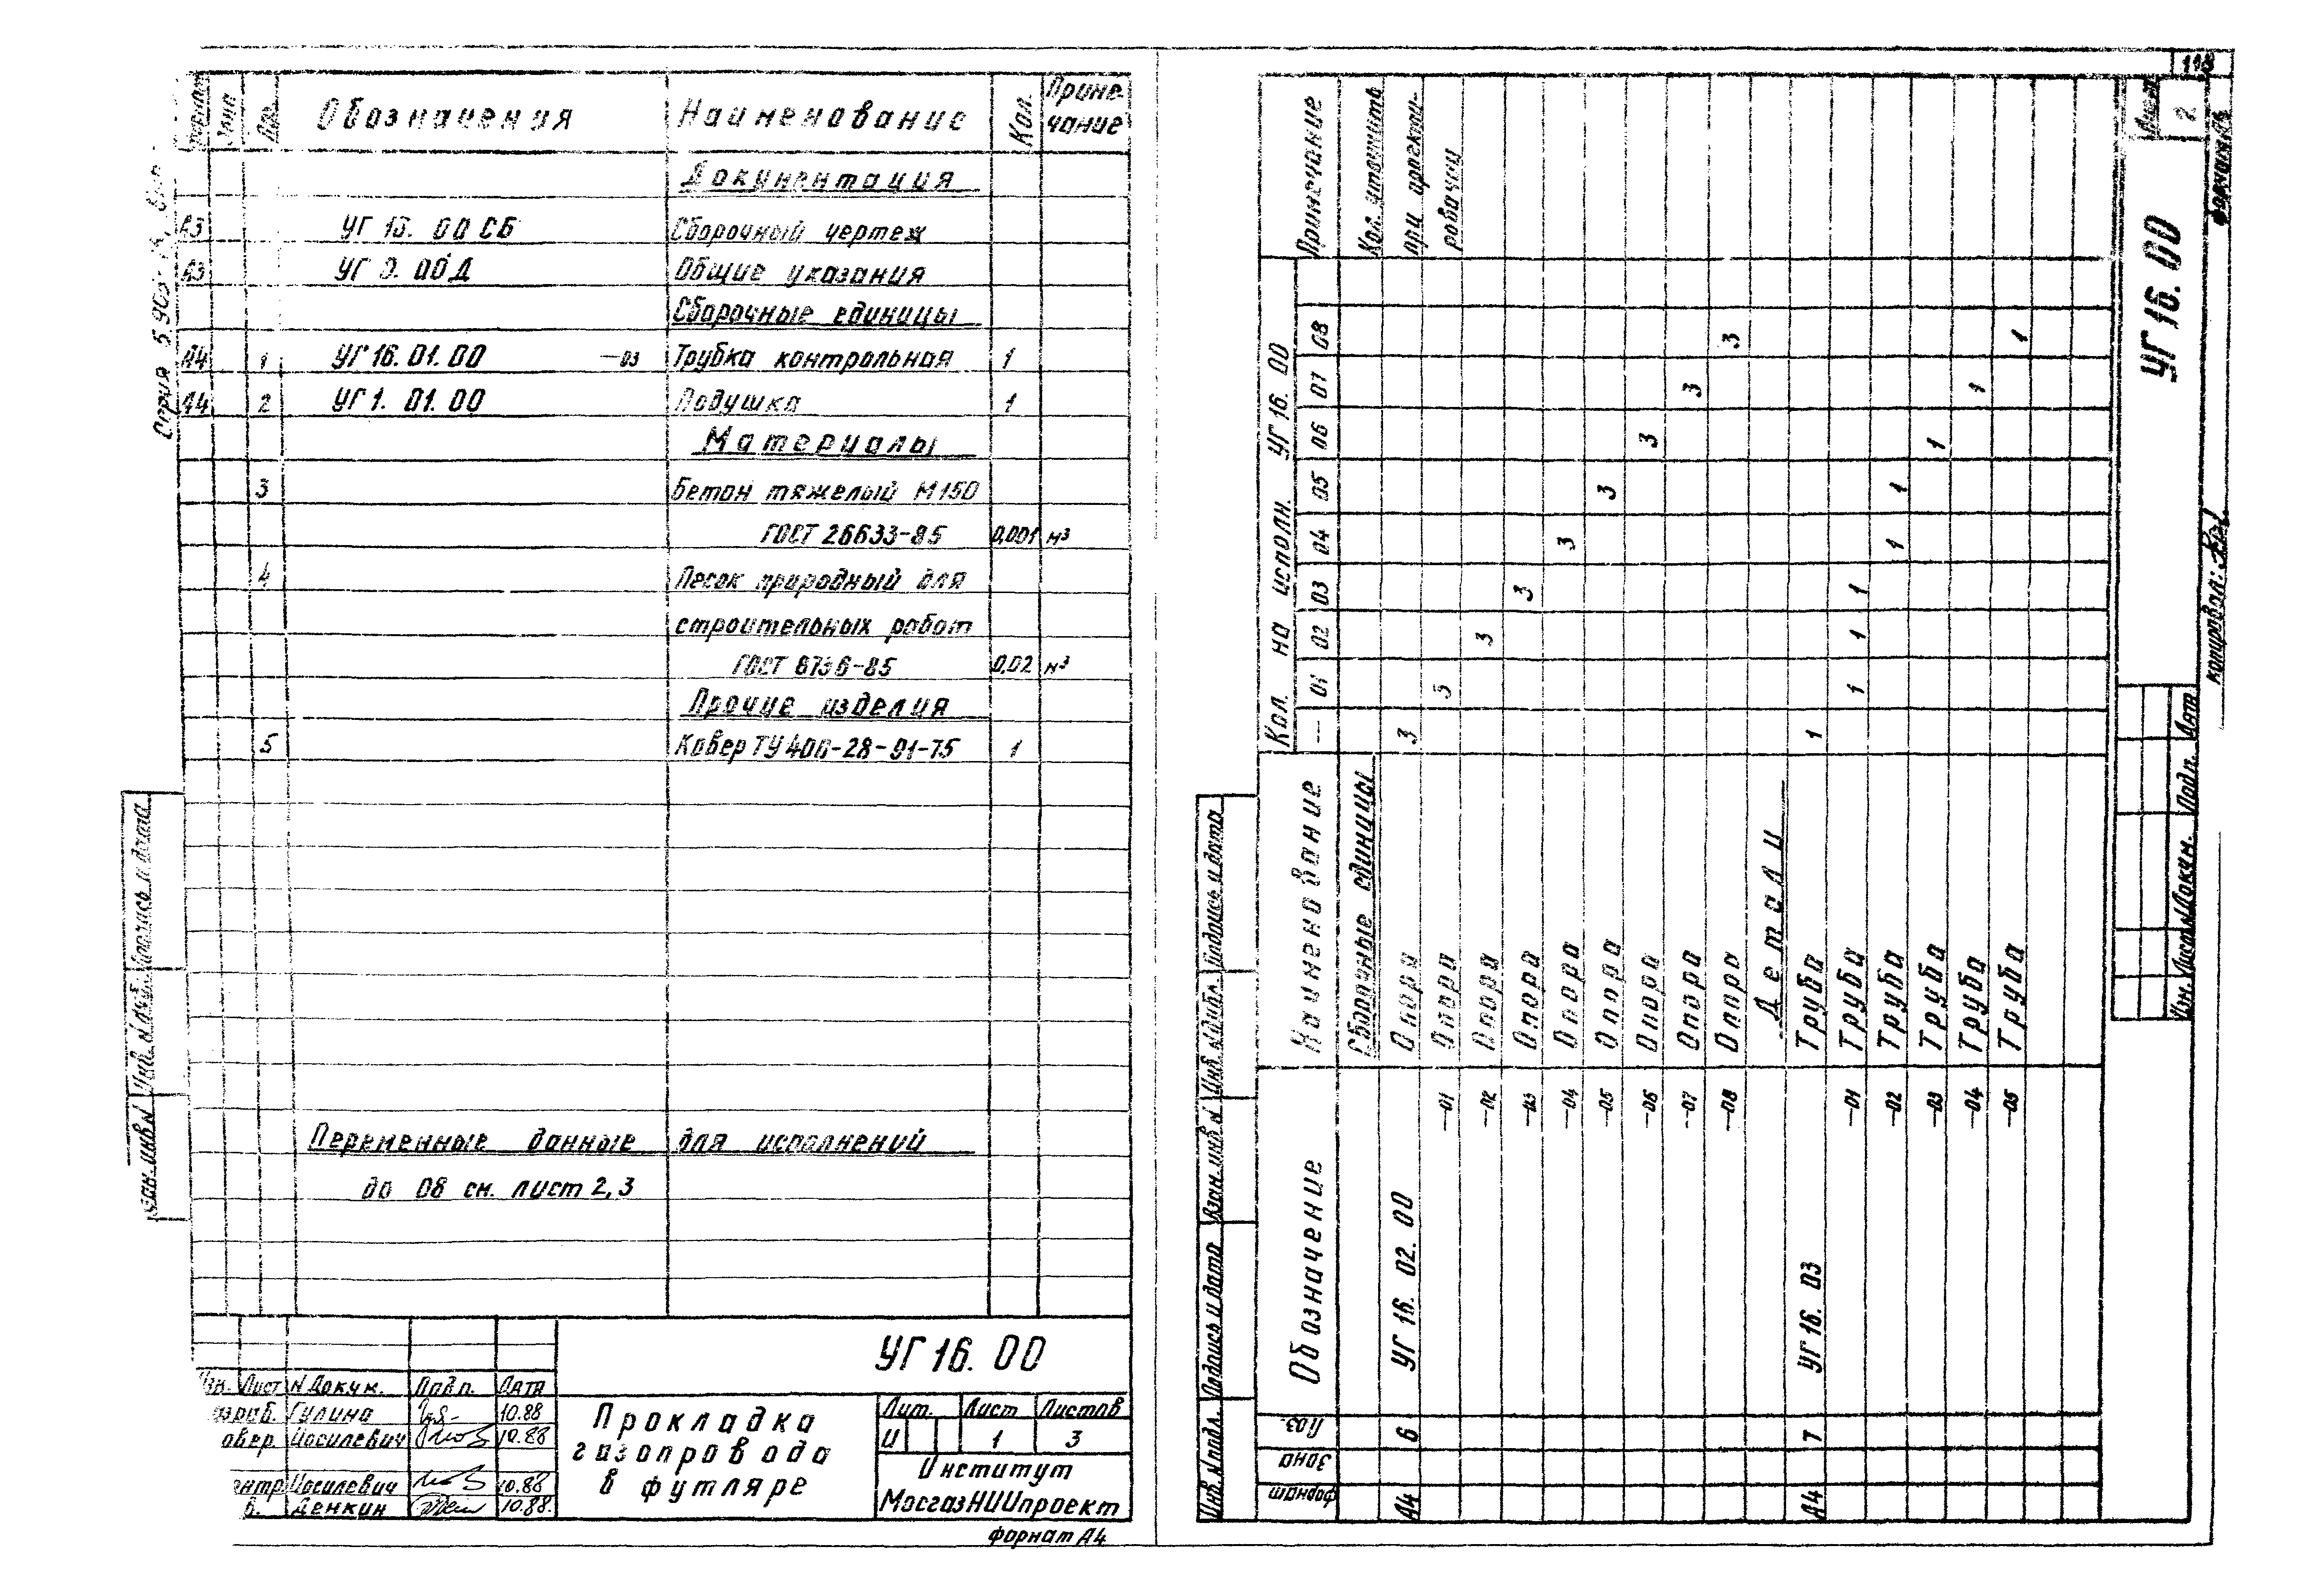 118
Обозначения Наименование Кол. Приме-
чание
Документация
А3 УГ 16. 00 СБ Сборочный чертеж
А3 УГ 0. 00 Д Общие указания
Сборочные единицы
А4 1 УГ 16. 01. 00 —03 Трубка контрольная 1
А4 2 УГ 1. 01. 00 Подушка 1
Материалы
3 Бетон тяжелый М150
ГОСТ 26633-85 0,001 м³
4 Песок природный для
строительных работ
ГОСТ 8736-85 0,02 м³
Прочие изделия
5 Ковер ТУ 400-28-91-75 1
Переменные данные для исполнений
до 08 см. лист 2,3
УГ 16. 00
Изм. Лист N Докум. Подп. Дата
Гулина 10.88
Иосилевич 10.88
Иосилевич 10.88
Денкин 10.88.
Прокладка
газопровода
в футляре
Лит. Лист Листов
И 1 3
Институт
МосгазНИИпроект
формат А4
Серия 5.905-
Подпись и дата
Инв. N дубл.
Взам. инв. N
Формат Зона Поз. Обозначение Наименование Кол. на исполн. УГ 16. 00 Примечание
— 01 02 03 04 05 06 07 08
Сборочные единицы Кол. уточнить
А4 6 УГ 16. 02. 00 Опора 3 при привязки-
—01 Опора 3 робочки
—02 Опора 3
—03 Опора 3
—04 Опора 3
—05 Опора 3
—06 Опора 3
—07 Опора 3
—08 Опора 3
Детали
А4 7 УГ 16. 03 Труба 1
—01 Труба 1 1 1
—02 Труба 1 1
—03 Труба 1
—04 Труба 1
—05 Труба 1
Инв. N подл. Подпись и дата Взам. инв. N Инв. N дубл. Подпись и дата
Изм. Лист N Докум. Подп. Дат
УГ 16. 00
Лист
2
копировал:
формат А4